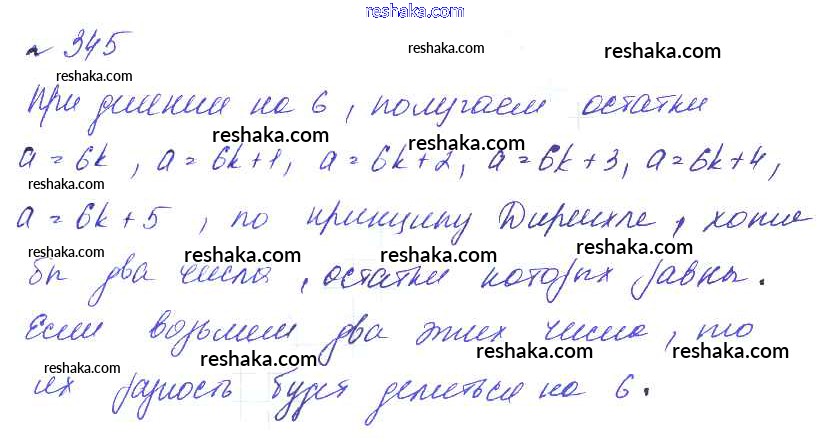 reshaka.com
№ 345
reshaka.com reshaka.com reshaka.com
При делении на 6, получаем остатки
reshaka.com reshaka.com
a = 6k, a = 6k+1, a = 6k+2, a = 6k+3, a = 6k+4,
reshaka.com reshaka.com reshaka.com
a = 6k+5, по принципу Дирихле, хотя
reshaka.com reshaka.com reshaka.com
бы два числа, остатки которых равны.
reshaka.com reshaka.com reshaka.com
Если возьмем два этих числа, то
reshaka.com reshaka.com reshaka.com
их разность будет делиться на 6.
reshaka.com reshaka.com